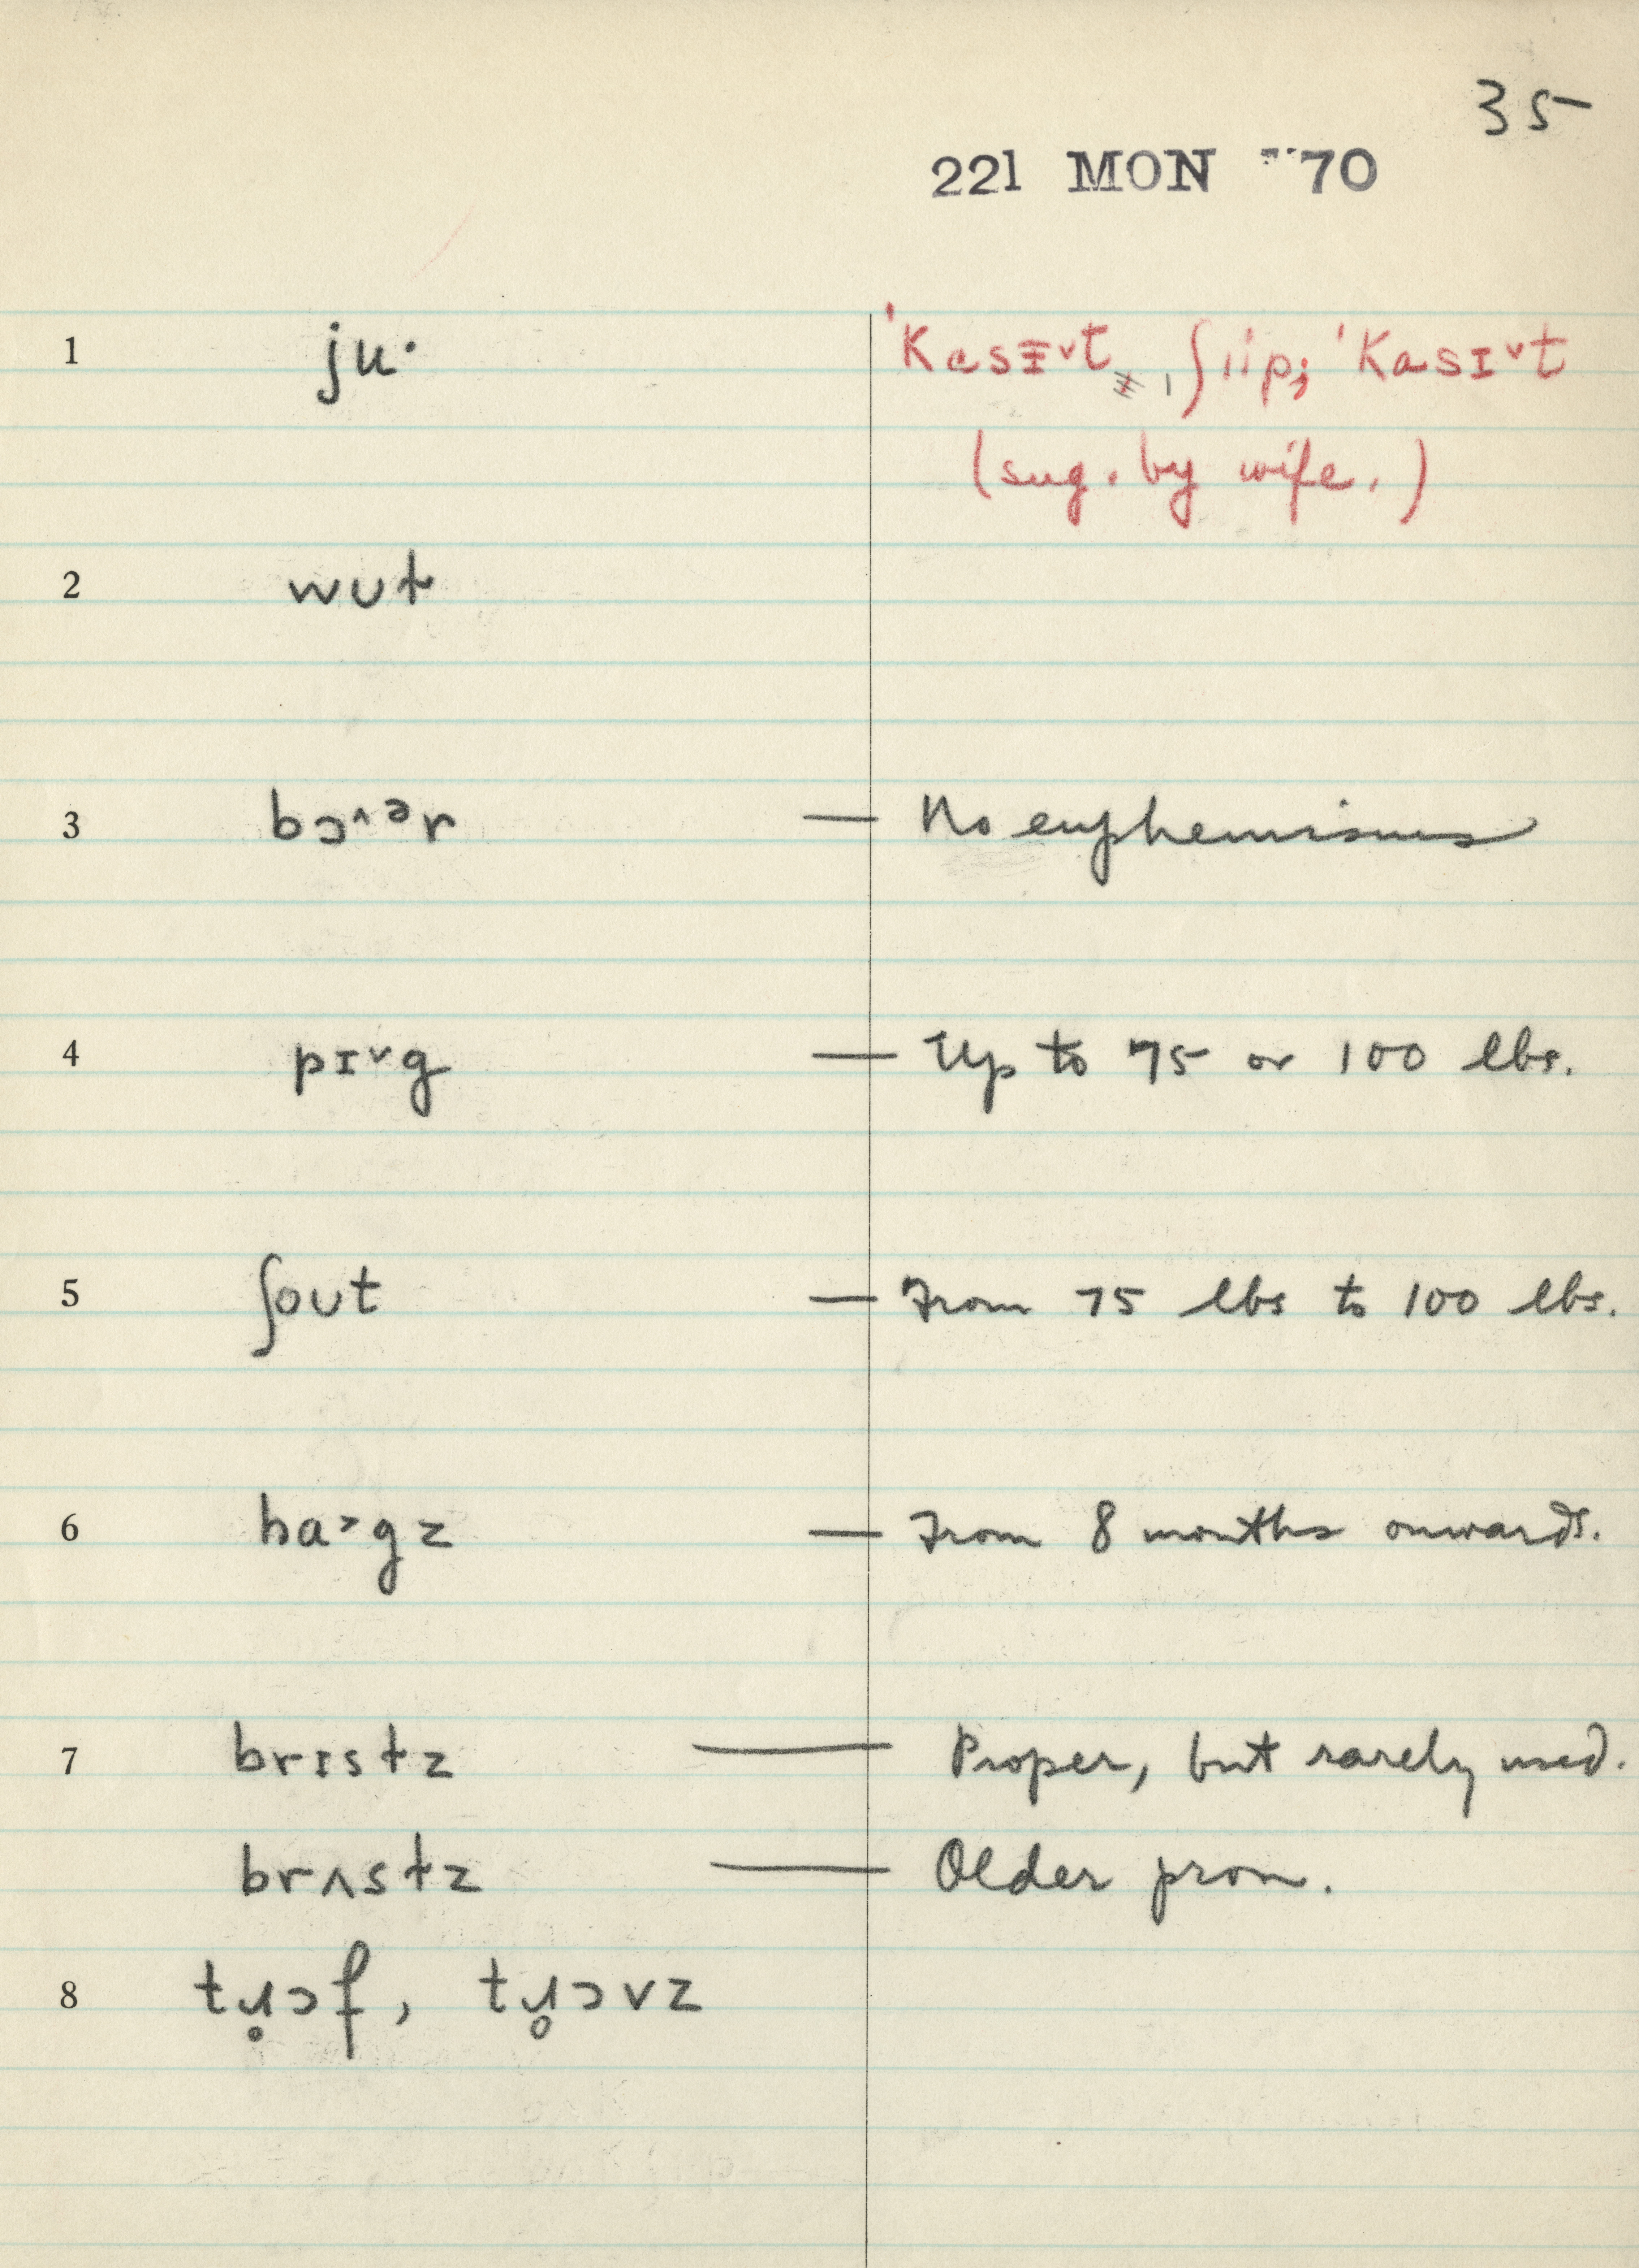 35
221 MON '70
1 ju· 'Kasɪ˅t, ʃiip; 'Kasɪ˅t
(sug. by wife.)
2 wut
3 bɔ^ər — No euphemisms
4 pɪ˅g — Up to 75 or 100 lbs.
5 ʃout — From 75 lbs to 100 lbs.
6 ha˃gz — From 8 months onwards.
7 brɪstz — Proper, but rarely used.
brʌstz — Older pron.
8 tɹ̥ɔf, tɹ̥ɔvz